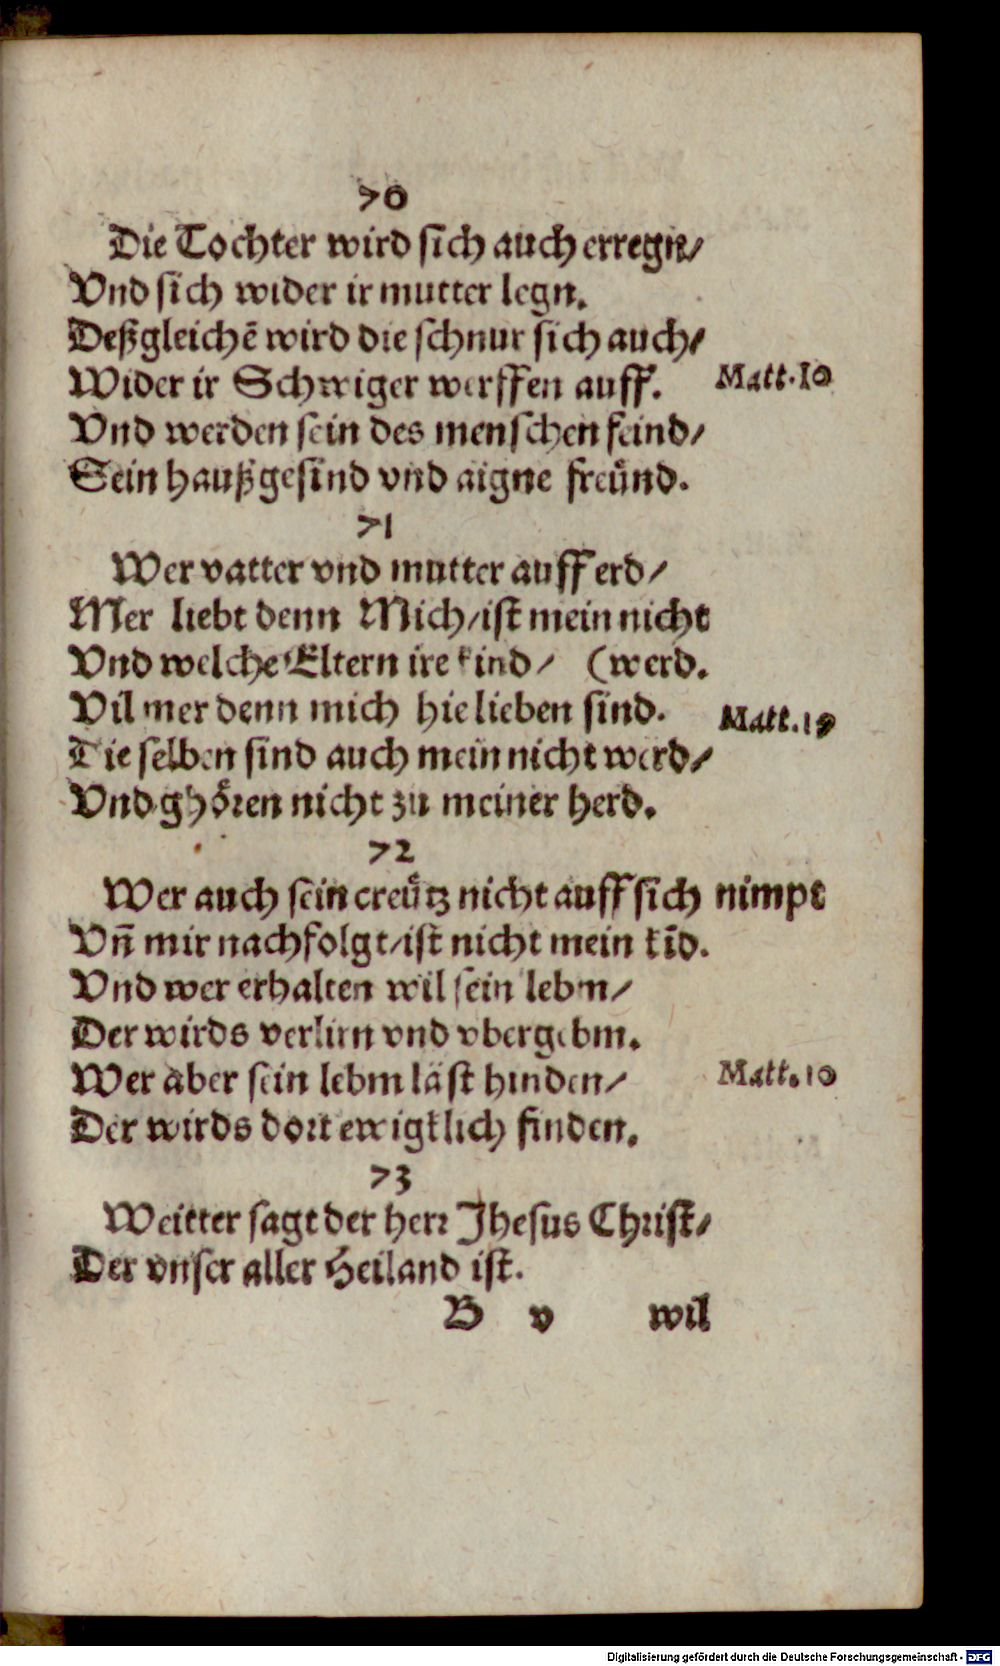 70
Die Tochter wird sich auch erregn/
Vnd sich wider ir mutter legn.
Deßgleichē wird die schnur sich auch/
Wider ir Schwiger werffen auff. Matt.10
Vnd werden sein des menschen feind/
Sein haußgesind vnd aigne freuͤnd.
71
Wer vatter vnd mutter auff erd/
Mer liebt denn Mich/ist mein nicht
Vnd welche Eltern ire kind/ (werd.
Vil mer denn mich hie lieben sind. Matt.19
Die selben sind auch mein nicht werd/
Vnd ghoͤren nicht zu meiner herd.
72
Wer auch sein creuͤtz nicht auff sich nimpt
Vñ mir nachfolgt/ist nicht mein kīd.
Vnd wer erhalten wil sein lebm/
Der wirds verlirn vnd vbergebm.
Wer aber sein lebm läst hinden/ Matt.10
Der wirds dort ewigklich finden.
73
Weitter sagt der herr Jhesus Christ/
Der vnser aller Heiland ist.
B v wil
Digitalisierung gefördert durch die Deutsche Forschungsgemeinschaft - DFG